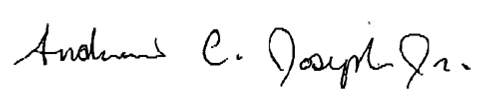 Andrew C. Joseph Jr.